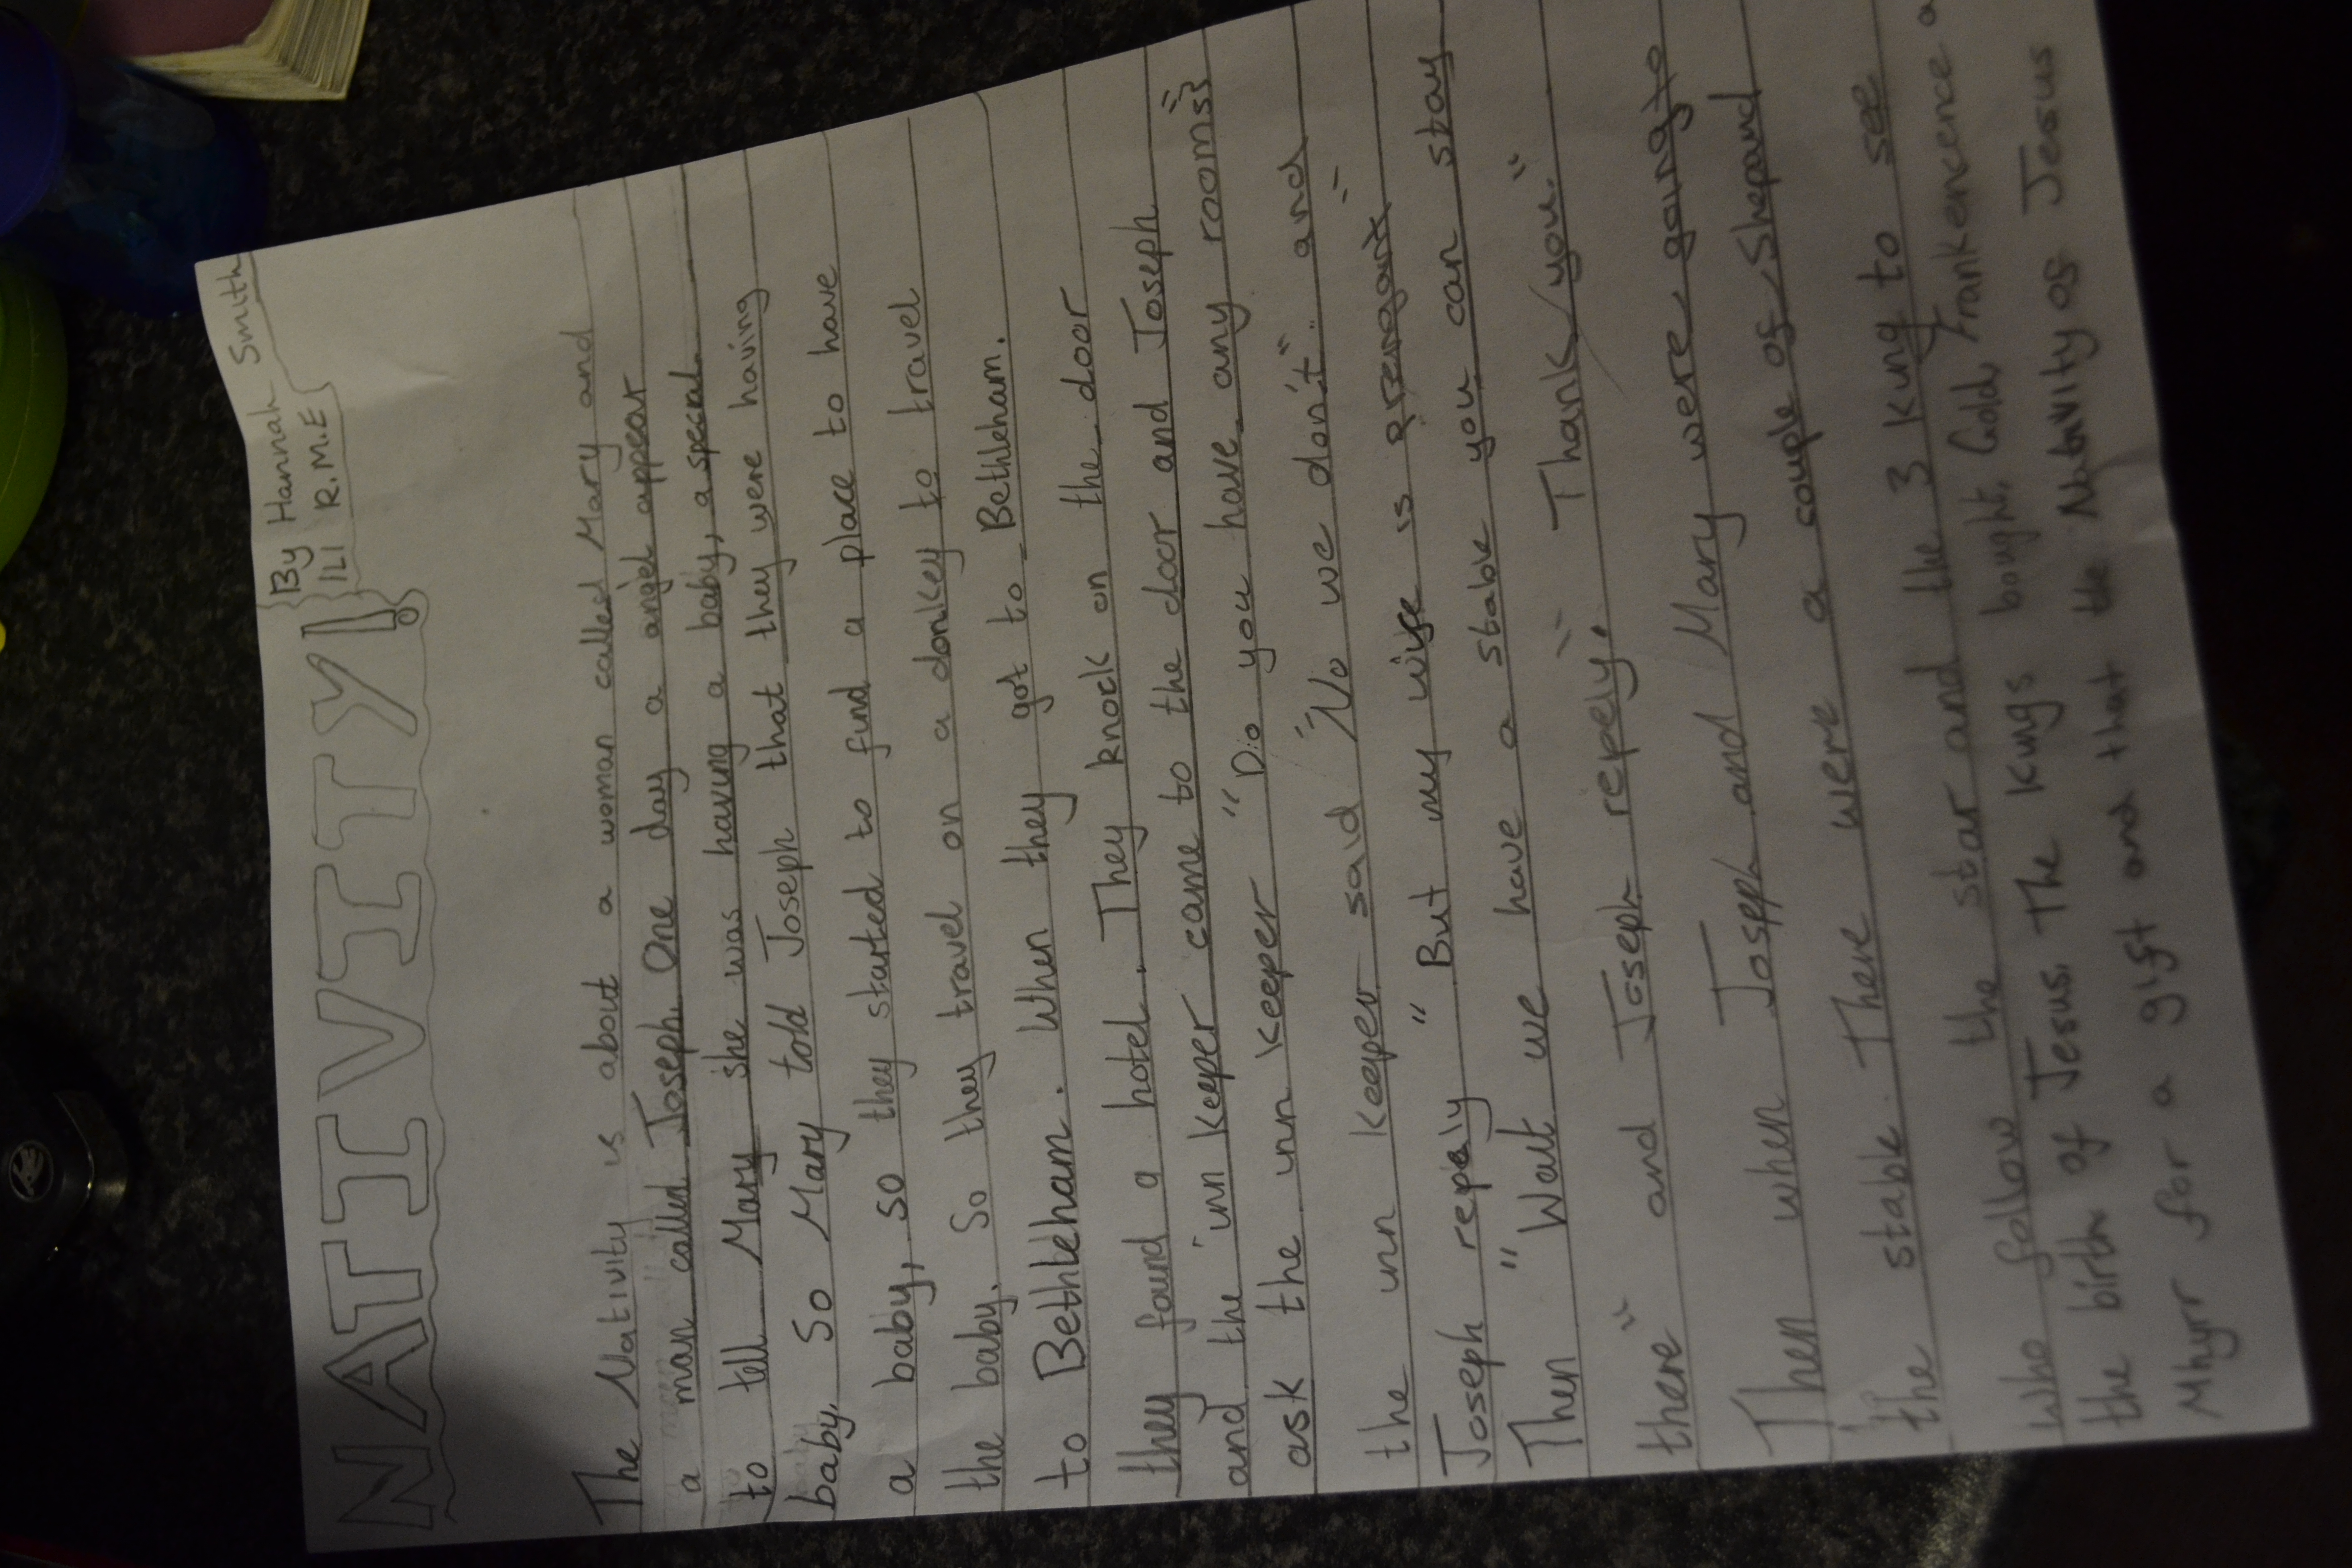 NATIVITY!
By Hannah Smith
1L1 R.M.E
The Nativity is about a woman called Mary and
a man called Joseph. One day a angel appear
to tell Mary she was having a baby, a special
baby. So Mary told Joseph that they were having
a baby, so they started to find a place to have
the baby. So they travel on a donkey to travel
to Bethleham. When they got to Bethleham.
they found a hotel. They knock on the door
and the inn keeper came to the door and Joseph
ask the inn keeper "Do you have any rooms"
the inn keeper said "No we don't" and
Joseph repaly "But my wife is
Then "Wait we have a stable you can stay
there" and Joseph repely, "Thank you."
Then when Joseph and Mary were going to
the stable. There were a couple of Shepard
who follow the star and the 3 Kung to see
the birth of Jesus. The Kings bought, Gold, Frankencence a
Mhyrr for a gift and that the Nativity of Jesus